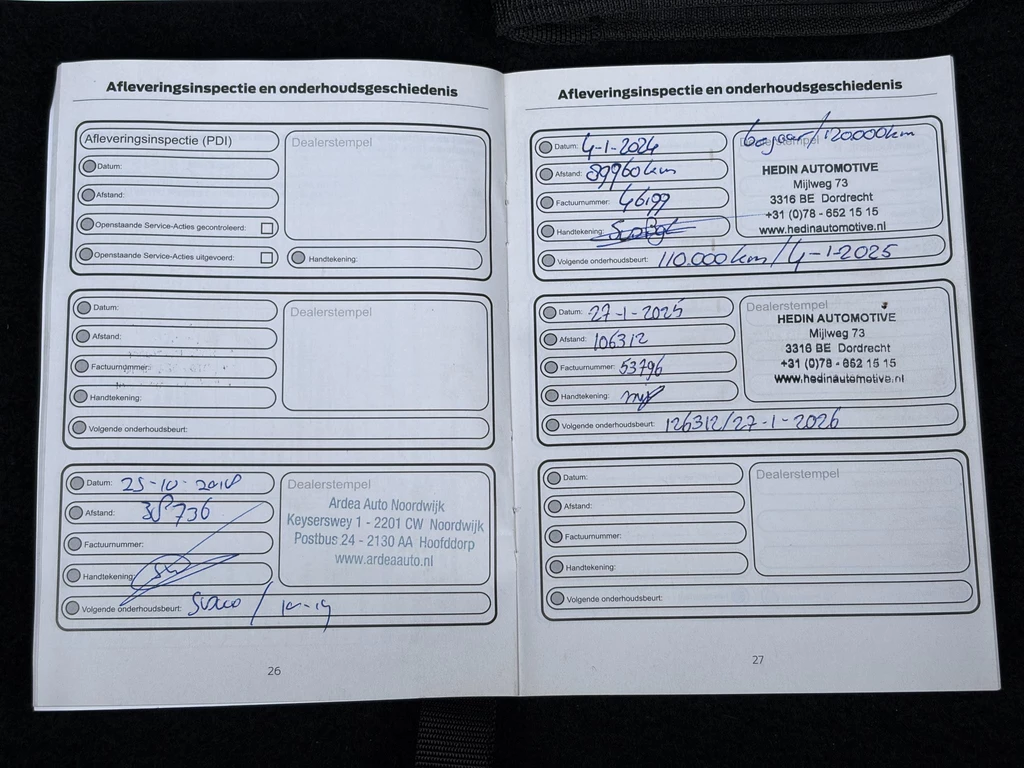 Afleveringsinspectie en onderhoudsgeschiedenis
Afleveringsinspectie (PDI)
Datum:
Afstand:
Openstaande Service-Acties gecontroleerd:
Openstaande Service-Acties uitgevoerd:
Dealerstempel
Handtekening:
Datum:
Afstand:
Factuurnummer:
Handtekening:
Volgende onderhoudsbeurt:
Dealerstempel
Datum: 25-10-2018
Afstand: 38736
Factuurnummer:
Handtekening:
Volgende onderhoudsbeurt: / 10-19
Dealerstempel
Ardea Auto Noordwijk
Keyserswey 1 - 2201 CW Noordwijk
Postbus 24 - 2130 AA Hoofddorp
www.ardeaauto.nl
26
Afleveringsinspectie en onderhoudsgeschiedenis
Datum: 4-1-2024
Afstand: 89960 km
Factuurnummer: 46199
Handtekening:
Volgende onderhoudsbeurt: 110.000 km / 4-1-2025
Dealerstempel
/ 120.000 km
HEDIN AUTOMOTIVE
Mijlweg 73
3316 BE Dordrecht
+31 (0)78 - 652 15 15
www.hedinautomotive.nl
Datum: 27-1-2025
Afstand: 106312
Factuurnummer: 53796
Handtekening:
Volgende onderhoudsbeurt: 126312/27-1-2026
Dealerstempel
HEDIN AUTOMOTIVE
Mijlweg 73
3316 BE Dordrecht
+31 (0)78 - 652 15 15
www.hedinautomotive.nl
Datum:
Afstand:
Factuurnummer:
Handtekening:
Volgende onderhoudsbeurt:
Dealerstempel
27